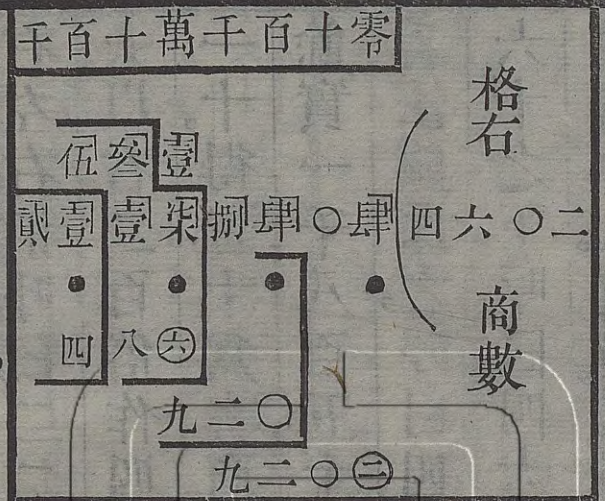 千百十萬千百十零
格右
伍參壹
貳壹壹柒捌肆〇肆 四六〇二
商數
四八六
九二〇
九二〇二